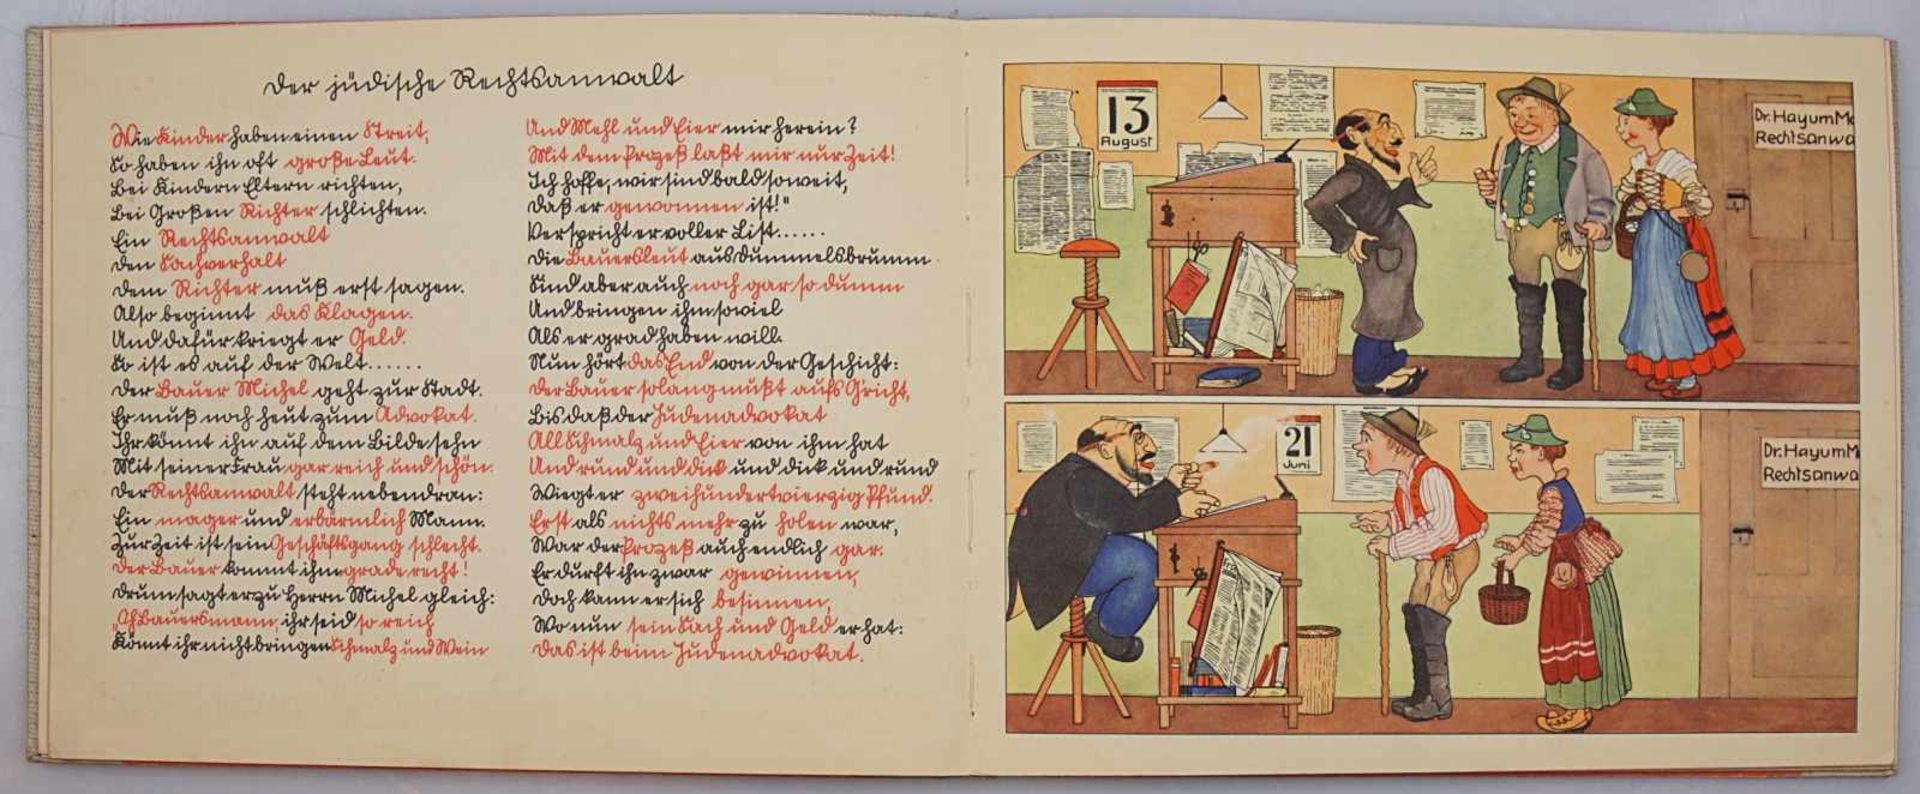 Der jüdische Rechtsanwalt
Wie Kinder haben einen Streit,
So haben ihn oft große Leut.
Bei Kindern Eltern richten,
Bei Großen Richter schlichten.
Ein Rechtsanwalt
Den Sachverhalt
Dem Richter muß erst sagen.
Also beginnt das Klagen.
Und dafür kriegt er Geld.
So ist es auf der Welt......
Der Bauer Michel geht zur Stadt.
Er muß noch heut zum Advokat.
Ihr könnt ihn auf dem Bilde sehn
Mit seiner Frau gar reich und schön.
Der Rechtsanwalt steht nebendran:
Ein mager und erbärmlich Mann.
Zur Zeit ist sein Geschäftsgang schlecht.
Der Bauer kommt ihm grade recht!
Drum sagt er zu Herrn Michel gleich:
„Oh Bauersmann, ihr seid so reich
Könnt ihr nicht bringen Schmalz und Wein
Und Mehl und Eier mir herein?
Mit dem Prozeß laßt mir nur Zeit!
Ich hoffe, wir sind bald soweit,
Daß er gewonnen ist!"
Verspricht er voller List......
Die Bauersleut aus Dummelsbrumm
Sind aber auch noch gar so dumm
Und bringen ihm soviel
Als er grad haben will.
Nun hört das End von der Geschicht:
Der Bauer solang mußt aufs Gricht,
Bis daß der Judenadvokat
All Schmalz und Eier von ihm hat
Und rund und dick und dick und rund
Wiegt er zweihundertvierzig Pfund.
Erst als nichts mehr zu holen war,
War der Prozeß auch endlich gar.
Er durft ihn zwar gewinnen,
Doch kann er sich besinnen,
Wo nun sein Sach und Geld er hat:
Das ist beim Judenadvokat.
13
August
Dr. Hayum M
Rechtsanwa
21
Juni
Dr. Hayum M
Rechtsanwa